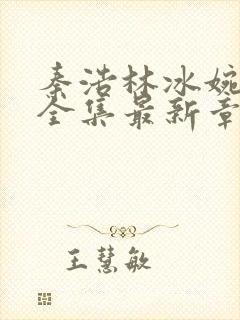 秦浩林冰婉
全集最新章
王慧敏